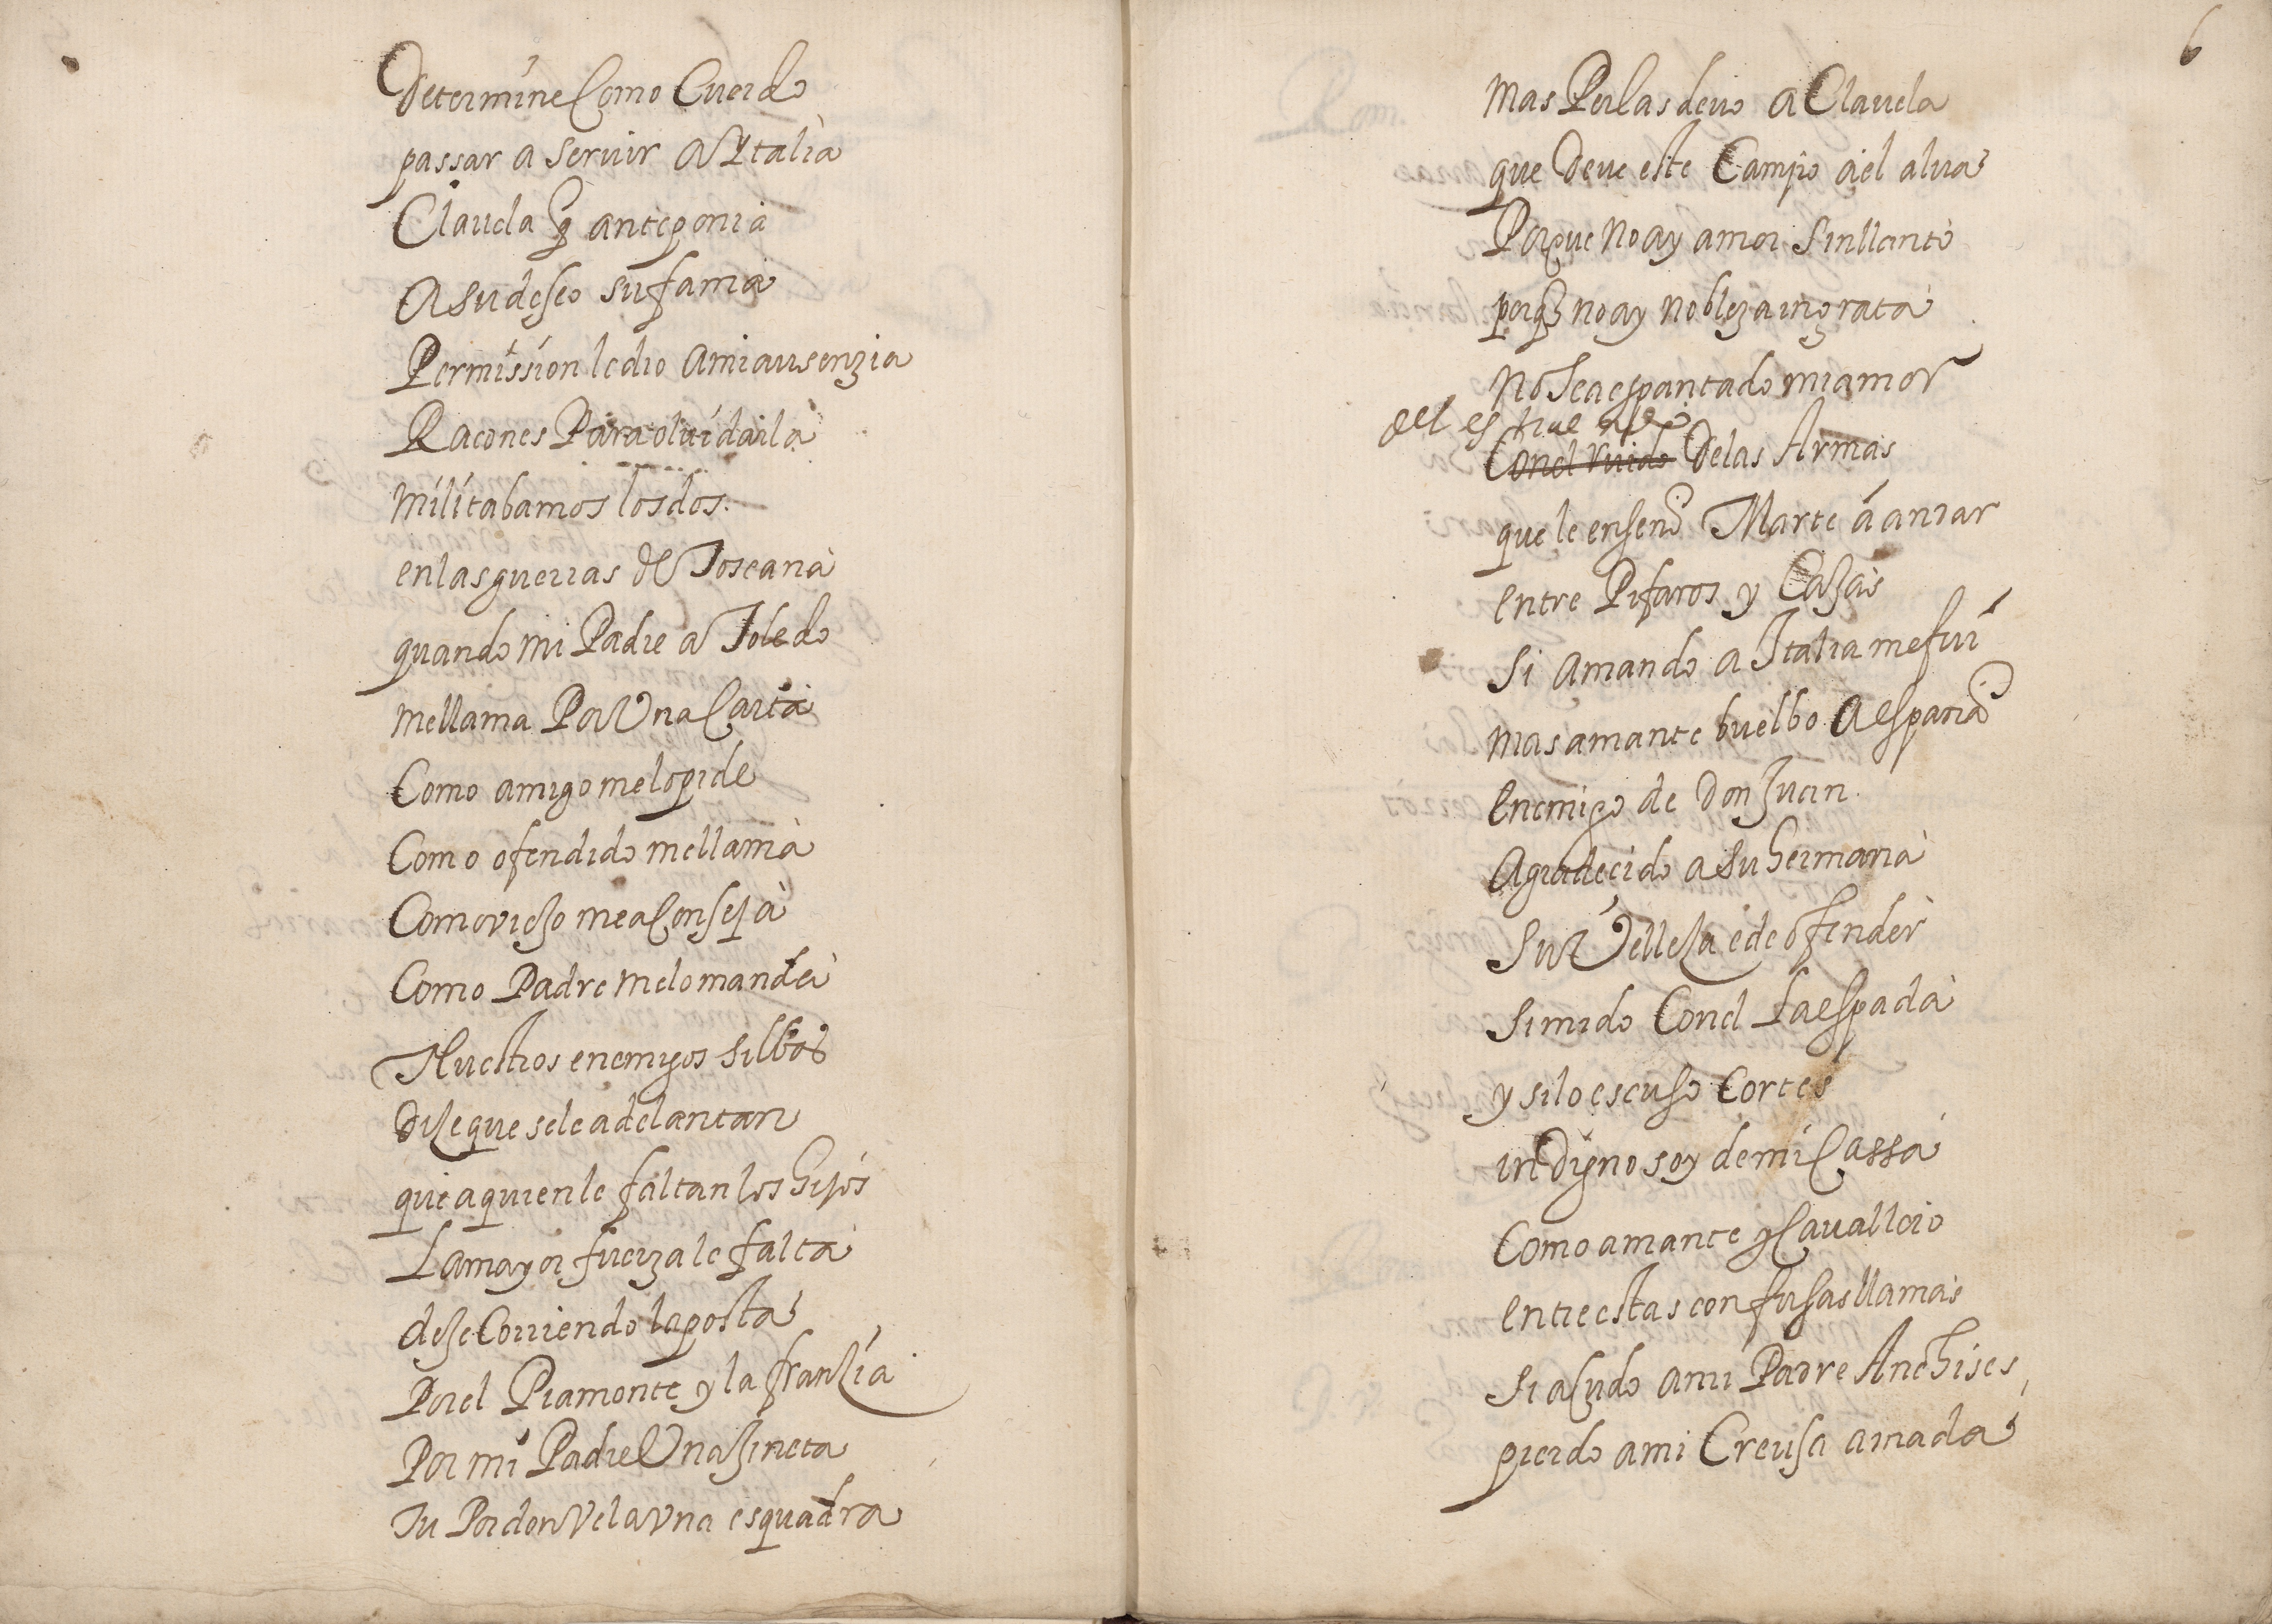 Determine Como Cuerdo
passar a servir a Ytalia
Clavela q̃ anteponia
a su deseo su fama
Permission le dio a mi ausenzia
Racones Para olvidarla
militabamos los dos.
en las guerras de Toscana
quando mi Padre a Toledo
me llama Por Una Carta
Como amigo me lo pide
Como ofendido me llama
Como viejo me aConseja
Como Padre me lo manda
Nuestros enemigos silbos
Dice que se le adelantan
que a quien le faltan los hijos
La mayor fuerza le falta
dejè Corriendo la posta
Por el Piamonte y la franzia
Por mi Padre Una Jineta
tu Por don Vela Una esquadra
6
mas Perlas devo a Clavela
que deve este Campo a el alva
Porque no ay amor sin llanto
porq̃ no ay nobleza ingrata
no se a espantado mi amor
del estruendo
Con el ruido de las Armas
que le enseño Marte á amar
entre Pifaros y Cajas
si amando a Italia me fui
mas amante buelbo a españa
enemigo de Don Juan
Agradecido a su hermana
su Velleza e de ofender
si mido Con el La espada
y si lo escuso Cortes
indigno soy de mi Cassa
Como amante y Cavallero
entre estas confusas llamas
si aCudo a mi Padre Anchises
pierdo a mi Creusa amada